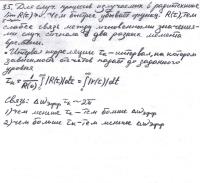 35. Для случ. процессов излучаемых в радиотехнике
lim R(τ)=0. Чем быстрее убывает функц. R(τ), тем
слабее связь между мгновенными значени-
ями случ. сигнала в два разные момента
времени.
• Интервал корреляции τк - интервал, на котором
зависимость отсчётов падает до заданного
уровня
τк = 1/R(0) ∫|R(τ)|dτ = ∫|r(τ)|dτ
Связь: Δωэфф τк ~ 2π
1) чем меньше τк - тем больше Δωэфф
2) чем больше τк - тем меньше Δωэфф